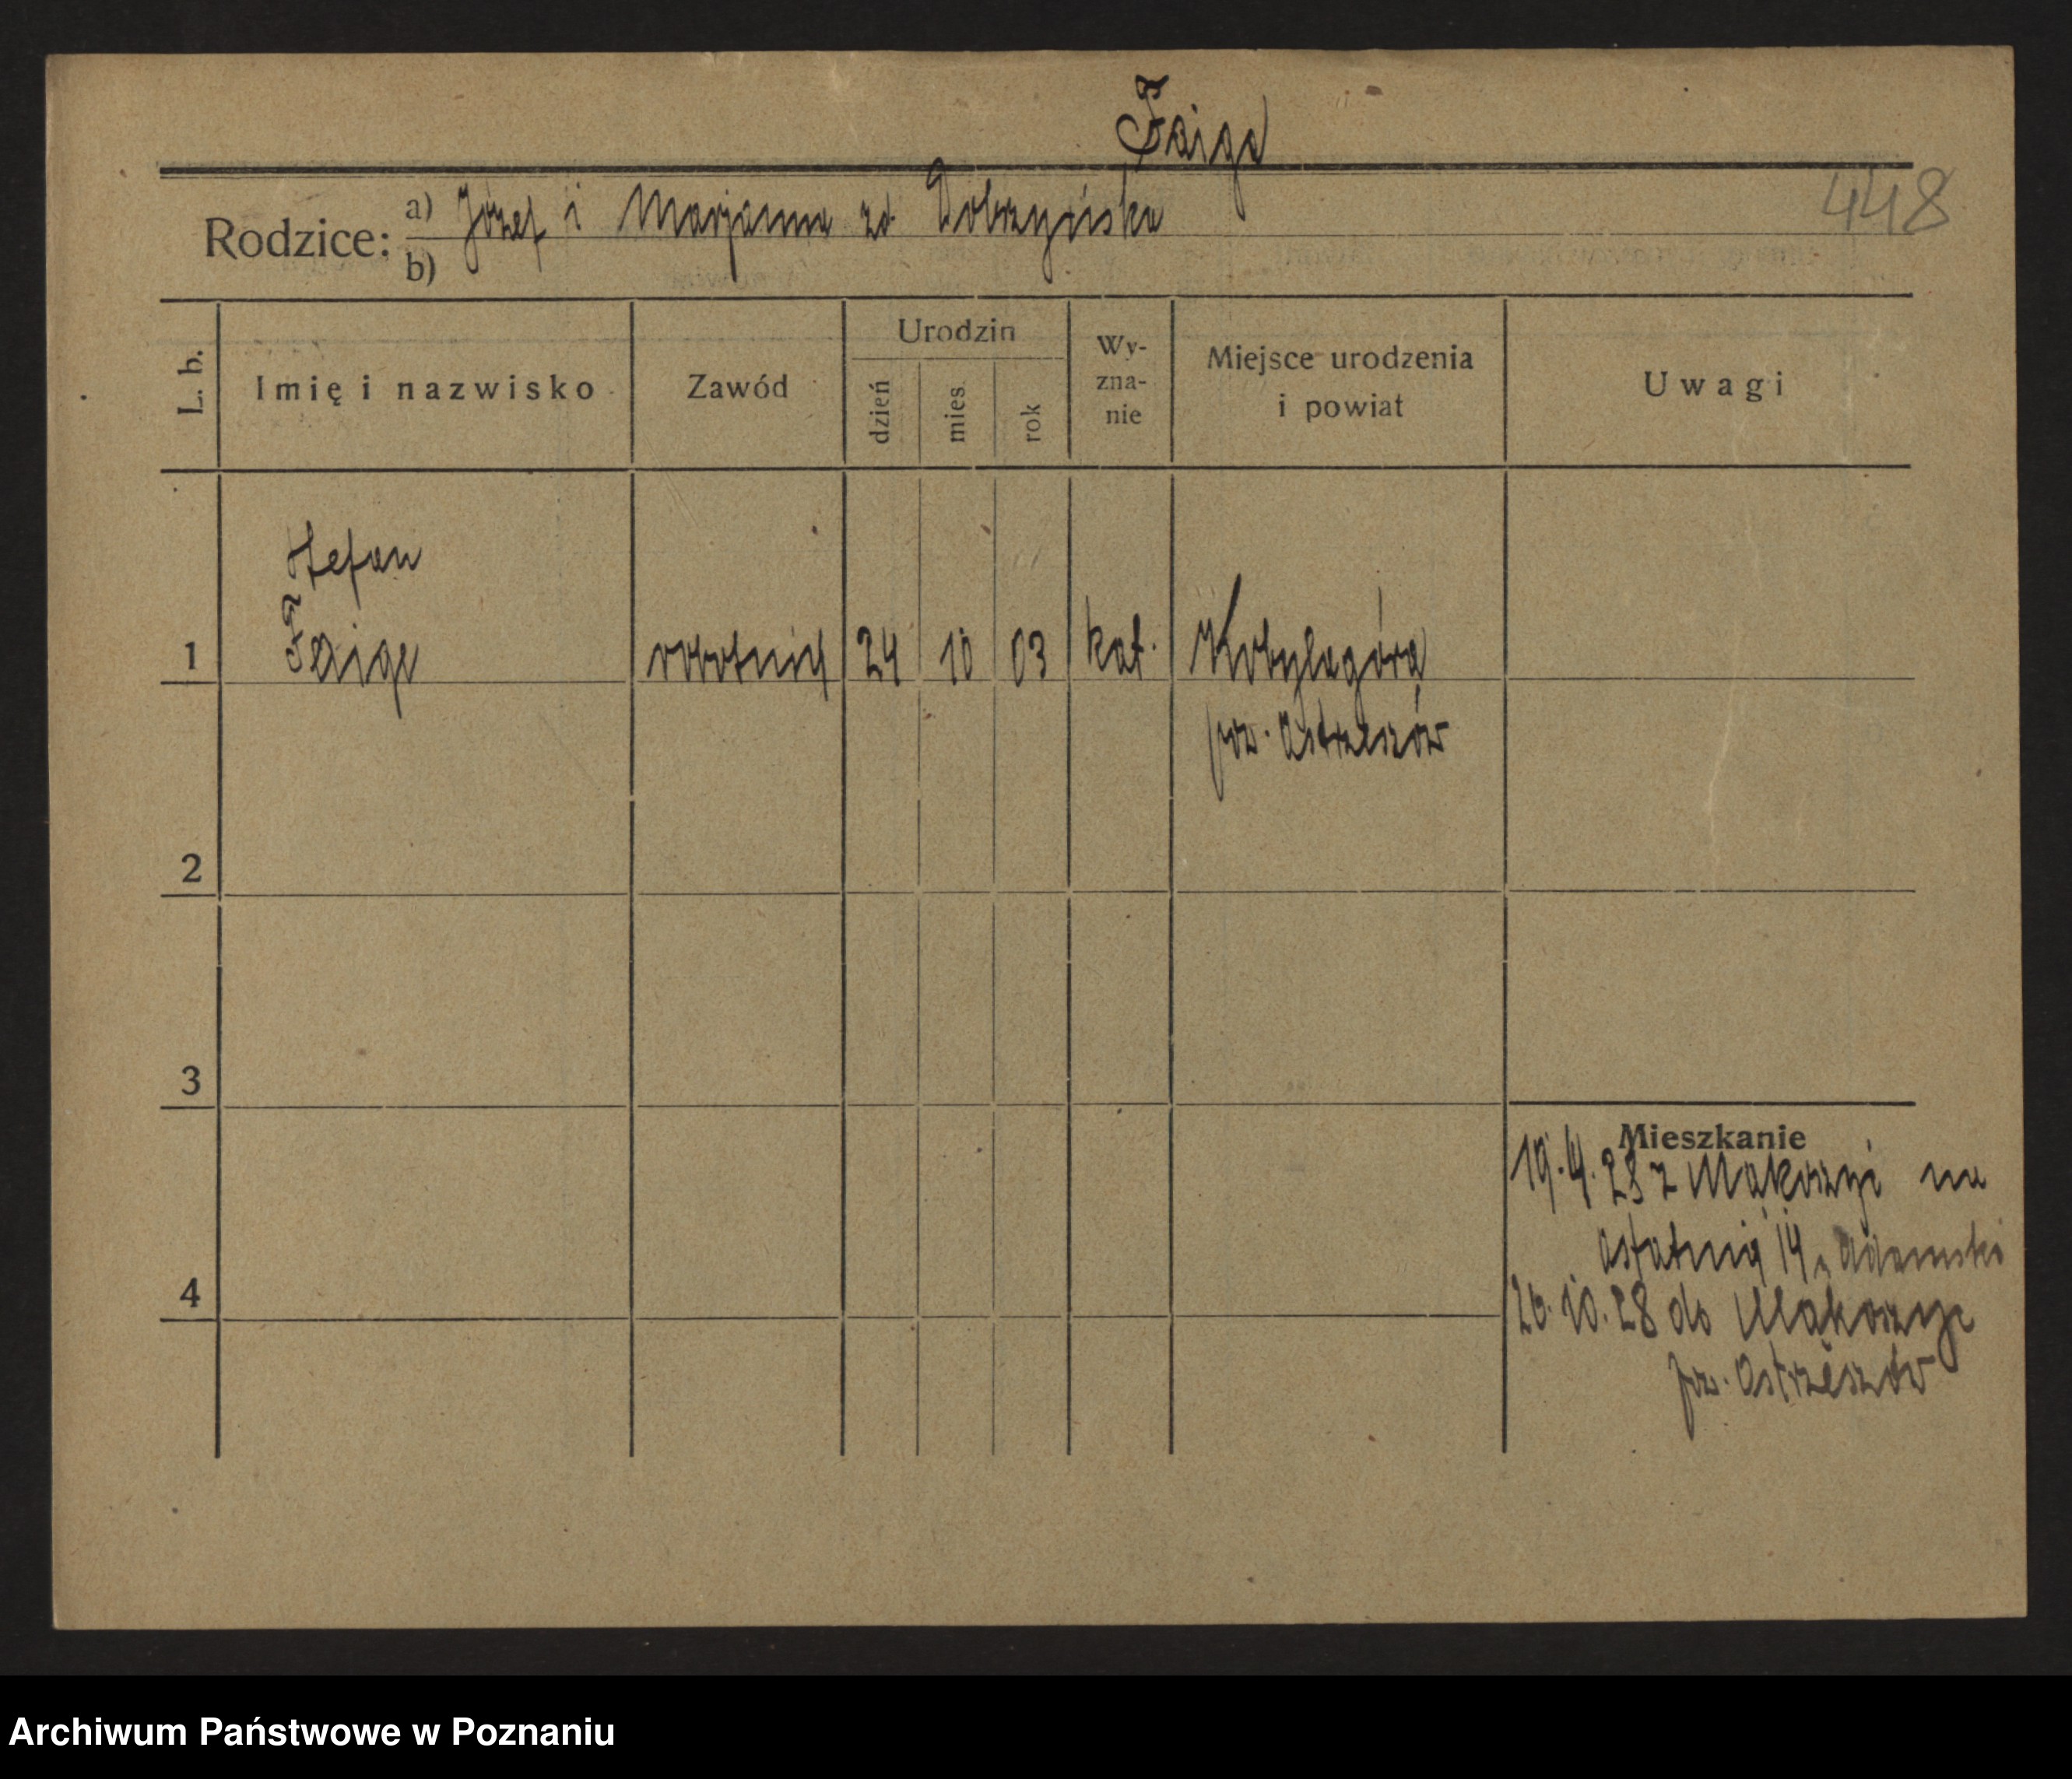 Faiga
448
Rodzice: a) Józef i Marjanna zd. Dobrzyńska
b)
L. b.
Imię i nazwisko
Zawód
Urodzin
dzień
mies
rok
Wy-
zna-
nie
Miejsce urodzenia
i powiat
Uwagi
Stefan
1 Faiga robotnik 24 10 03 kat. Kobylagóra
pow. Ostrzeszów
2
3
4
Mieszkanie
19.4.28 z na
Ostatnia 14 Adamski
26.10.28 do
pow. Ostrzeszów
Archiwum Państwowe w Poznaniu